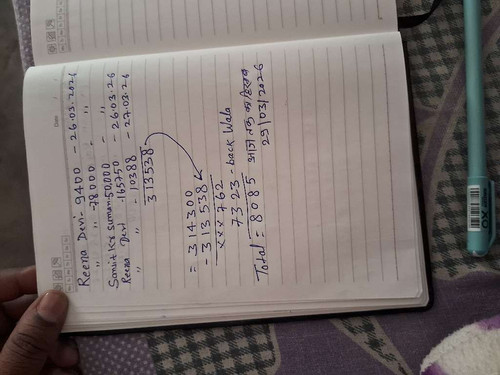 Reena Devi - 9400 - 26.03.2026
" " - 78000 - " "
Sumit Kr Suman - 50,000 - " "
Reena Devi - 165750 - 26.03.26
" " - 10388 - 27.03.26
313538
= 314300
- 313538
×××762
7323 - back Wala
Total = 8085 आज तक का हिसाब
29/03/2026